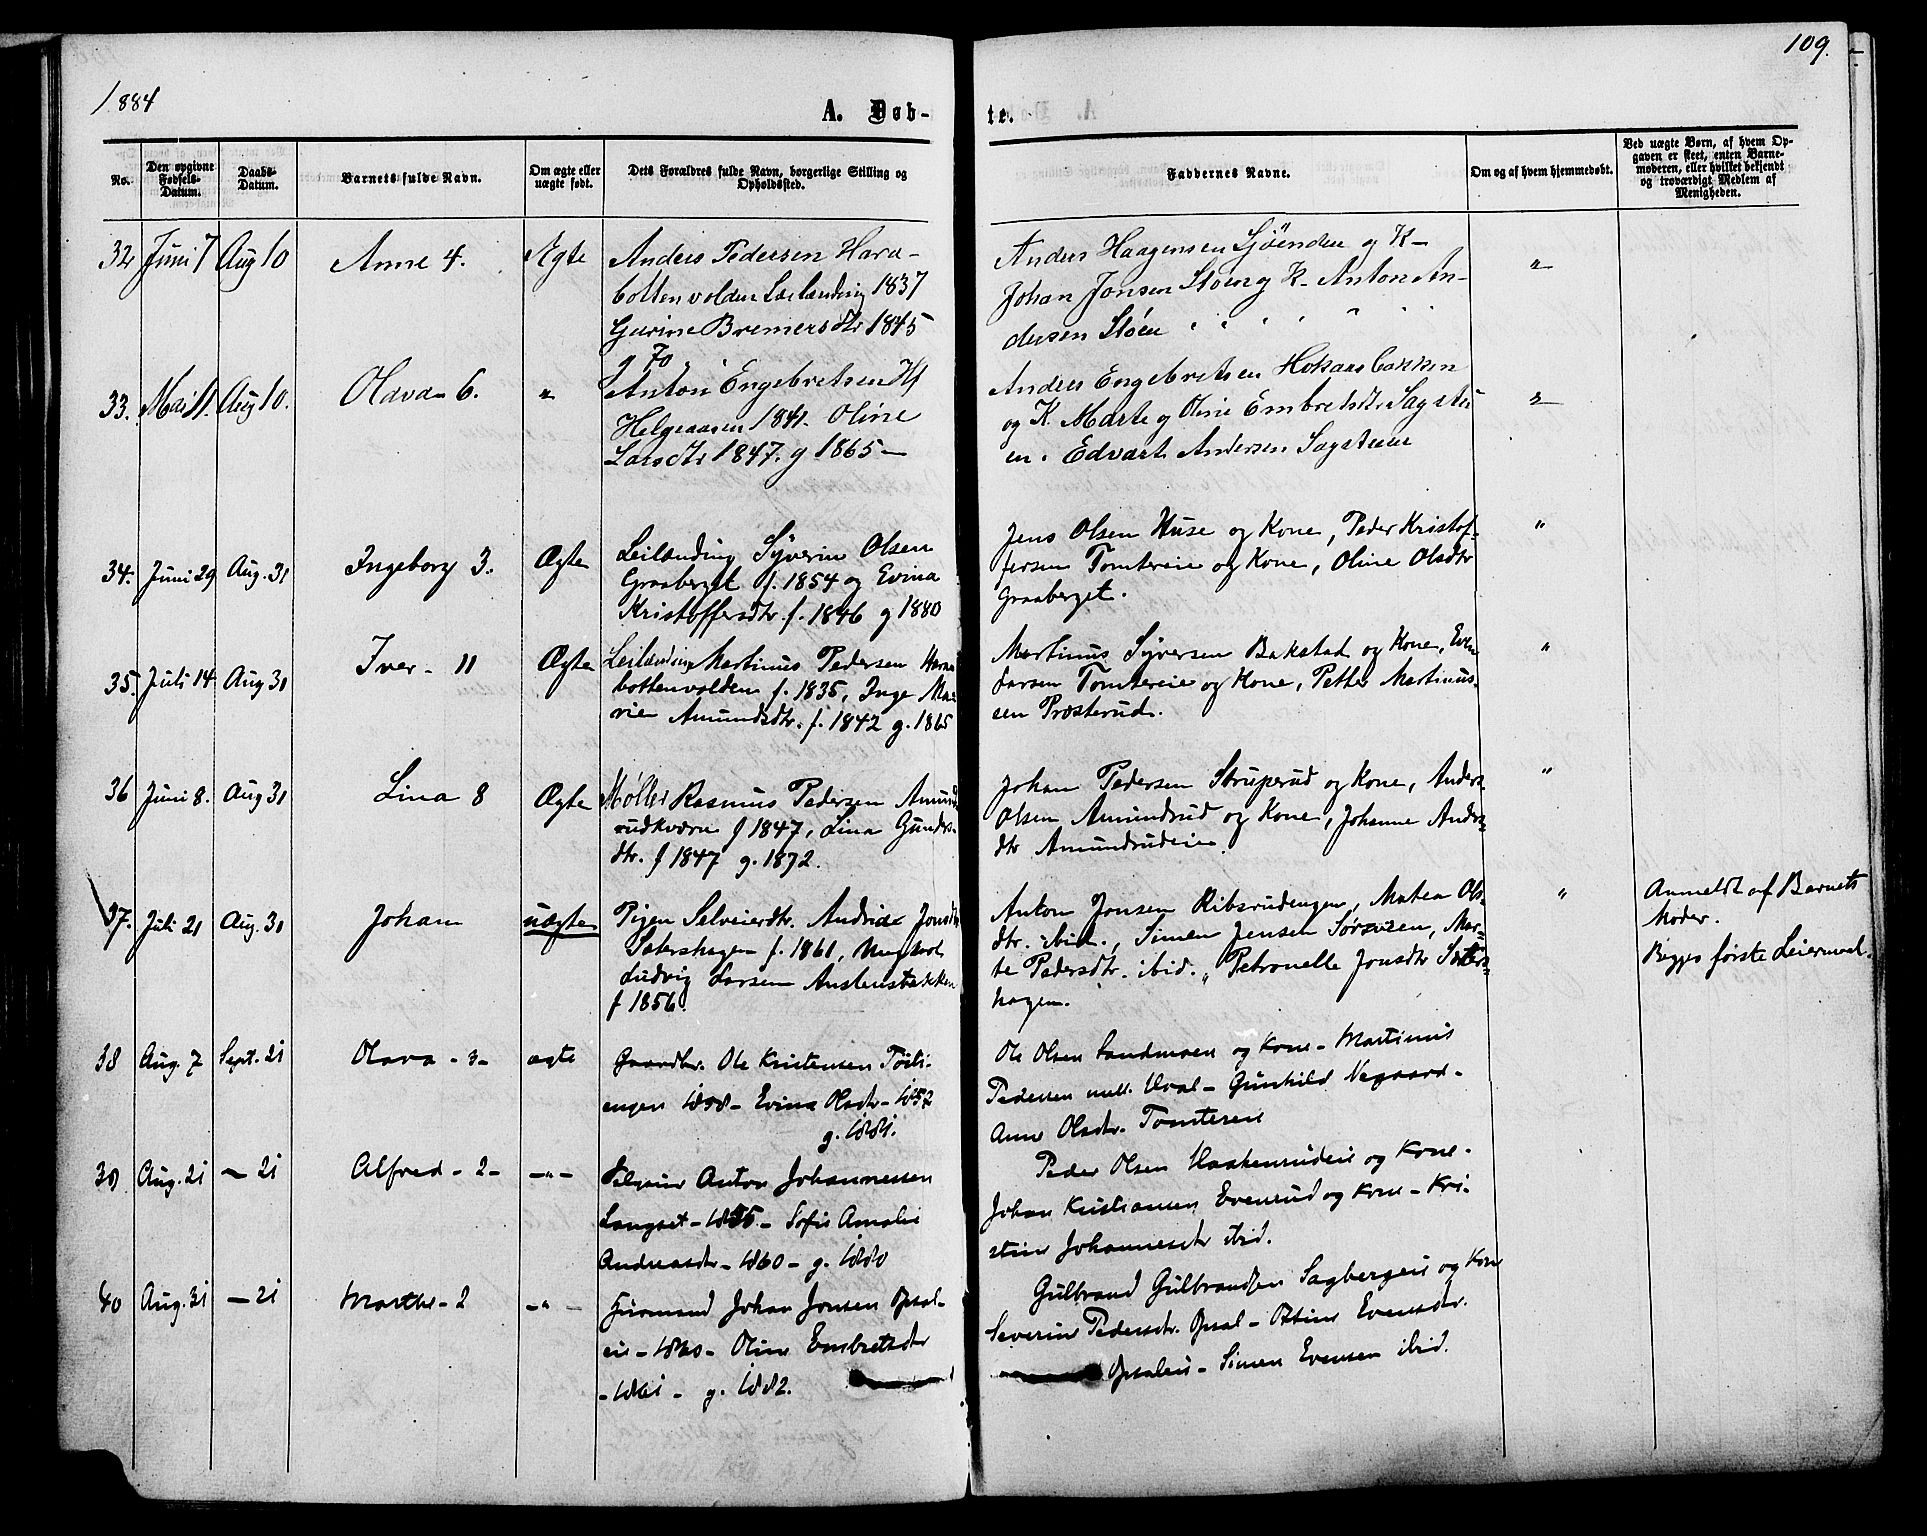 1884
109.
A. Døb-
te.
No.
Den opgivne Fødsels-Datum.
Daabs-Datum.
Barnets fulde Navn.
Om ægte eller uægte født.
Dets Forældres fulde Navn, borgerlige Stilling og Opholdssted.
Faddernes Navne.
Om og af hvem hjemmedøbt.
Ved uægte Børn, af hvem Opgaven er skeet, enten Barnemoderen, eller hvilket bekjendt og troværdigt Medlem af Menigheden.
32 Juni 7 Aug 10 Anne 4. Ægte
Anders Pedersen Hara-
bottenvolden Leilænding 1837
Gurine Bremersdtr 1845
g 70.
Anders Haagensen Sjöenden og K-
Johan Jonsen Stöen og K- Anton An-
dersen Stöen
"
33. Mai 11. Aug 10. Olava - 6. "
Anton Engebretsen Hf
Helgeaasen 1841. Oline
Larsdtr 1847. g 1865 -
Anders Engebretsen Hokaasbakken
og K. Marte og Oline Embretsdtr Sagstu-
en. Edvart Andersen Sagstuen
"
34. Juni 29 Aug. 31 Ingeborg 3. Ægte
Leilænding Syverin Olsen
Graaberget f. 1854 og Evina
Kristoffersdtr. f. 1846 g 1880
Jens Olsen Huse og Kone, Peder Kristof-
fersen Tomtereie og Kone, Oline Olsdtr
Graaberget.
"
35. Juli 14. Aug 31 Iver - 11 Ægte
Leilænding Martinus Pedersen Hara
bottenvolden f. 1835, Inge Ma-
rie Amundsdtr. f. 1842 g. 1865
Martinus Syversen Bakstad og Kone, Even
Larsen Tomtereie og Kone, Petter Martinus-
sen Prosterud.
"
36 Juni 8. Aug 31 Lina 8 Ægte
Møller Rasmus Pedersen Amund
rudkværn f 1847, Lina Gunders-
dtr. f 1847 g. 1872.
Johan Pedersen Struperud og Kone, Anders
Olsen Amundrud og Kone, Johanne Anders-
dtr Amundrudeie.
"
37. Juli 21 Aug. 31 Johan uægte
Pigen Selveierdtr. Andrine Jonsdtr
Sætershagen f. 1861, Ungkarl
Ludvig Larsen Austensbakken
f 1856.
Anton Jonsen Ribsrudengen, Matea Ols-
dtr. ibid., Simen Jensen Søraasen, Mar-
te Pedersdtr. ibid., Petronelle Jonsdtr Sæters-
hagen.
"
Anmeldt af Barnets
Moder.
Begges første Leiermaal.
38 Aug. 7 Sept. 21 Olava - 3 - ægte
Gaardbr. Ole Kristensen Töili-
engen 1858 - Evina Olsdtr - 1857
g. 1881.
Ole Olsen Sandmoen og Kone - Martinus
Pedersen mell. Hval - Gunhild Negaard -
Anne Olsdtr. Tomtereie
39 Aug. 21 - 21 Alfred - 2 - - " -
Selveier Anton Johannessen
Langset - 1855 - Sofie Amalie
Andreasdtr - 1860 - g. 1880
Peder Olsen Haakenrudeie og Kone -
Johan Kristiansen Evenrud og Kone - Kri-
stine Johannesdtr ibid.
40 Aug. 31 - 21 Marthe - 2 - " -
Huusmand Johan Jonsen Opsal-
eie - 1860 - Oline Embretsdtr
- 1861 - g. 1882.
Gulbrand Gulbrandsen Sagbergeie og Kone
Severine Pedersdtr. Opsal - Ottine Evensdtr.
Opsaleie - Simen Evensen ibid.